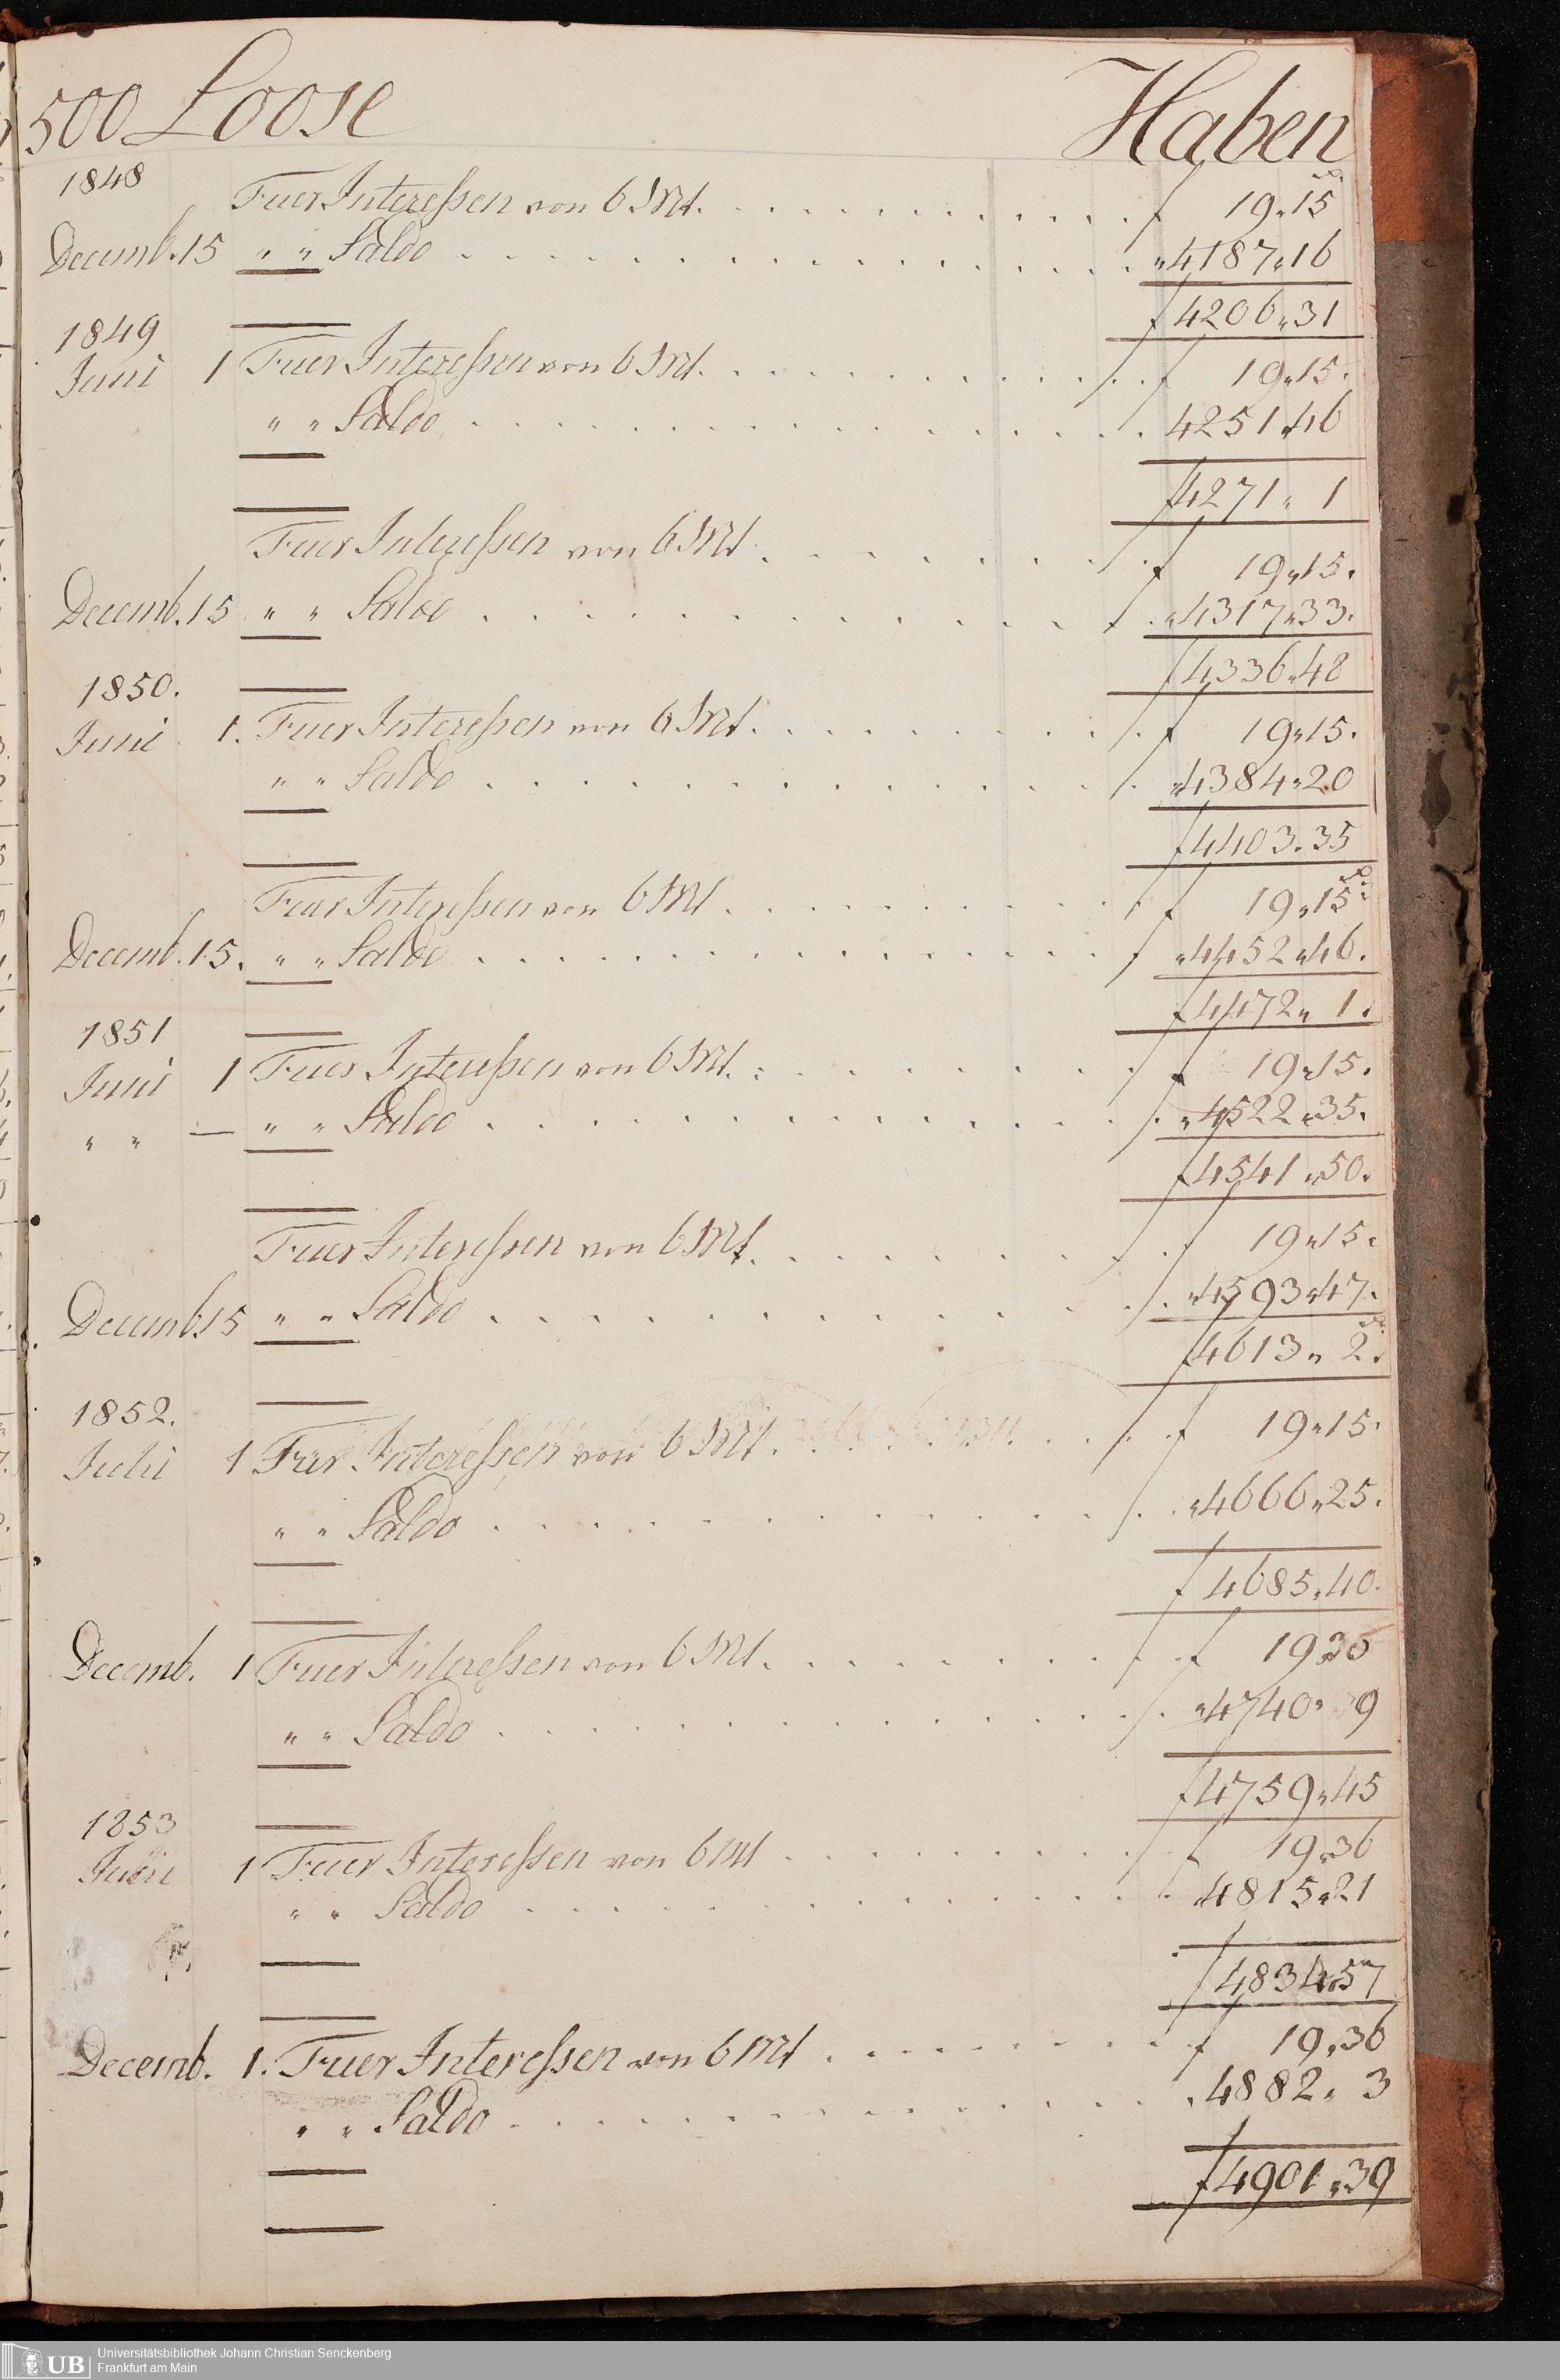 500 Loose Haben
1848 Fuer Interessen von 6 Mt. f 19 " 15
Decemb. 15 " " Saldo " 4187 " 16
f 4206 " 31
1849
Juni 1 Fuer Interessen von 6 Mt. f 19 " 15.
" " Saldo 4251 " 46
f 4271 " 1
Fuer Interessen von 6 Mt. f 19 " 15.
Decemb. 15 " " Saldo " 4317 " 33.
f 4336 " 48
1850.
Juni 1. Fuer Interessen von 6 Mt. f 19 " 15.
" " Saldo " 4384 " 20
f 4403 " 35
Fuer Interessen von 6 Mt. f 19 " 15.
Decemb. 15. " " Saldo " 4452 " 46.
f 4472 " 1.
1851
Juni 1 Fuer Interessen von 6 Mt. f 19 " 15.
" " — " " Saldo " 4522 " 35.
f 4541 " 50.
Fuer Interessen von 6 Mt. f 19 " 15.
Decemb 15 " " Saldo " 4593 " 47.
f 4613 " 2.
1852.
1 Fuer Interessen von 6 Mt. f 19 " 15.
" " Saldo " 4666 " 25.
f 4685 " 40.
Decemb. 1 Fuer Interessen von 6 Mt. f 19
" " Saldo " 4740 " 9
f 4759 " 45
1853
1 Fuer Interessen von 6 Mt f 19 " 36
" " Saldo " 4815 " 21
f 4834 " 57
Decemb. 1. Fuer Interessen von 6 Mt f 19 " 36
" " Saldo " 4882 " 3
f 4901 " 39
UB Universitätsbibliothek Johann Christian Senckenberg
Frankfurt am Main